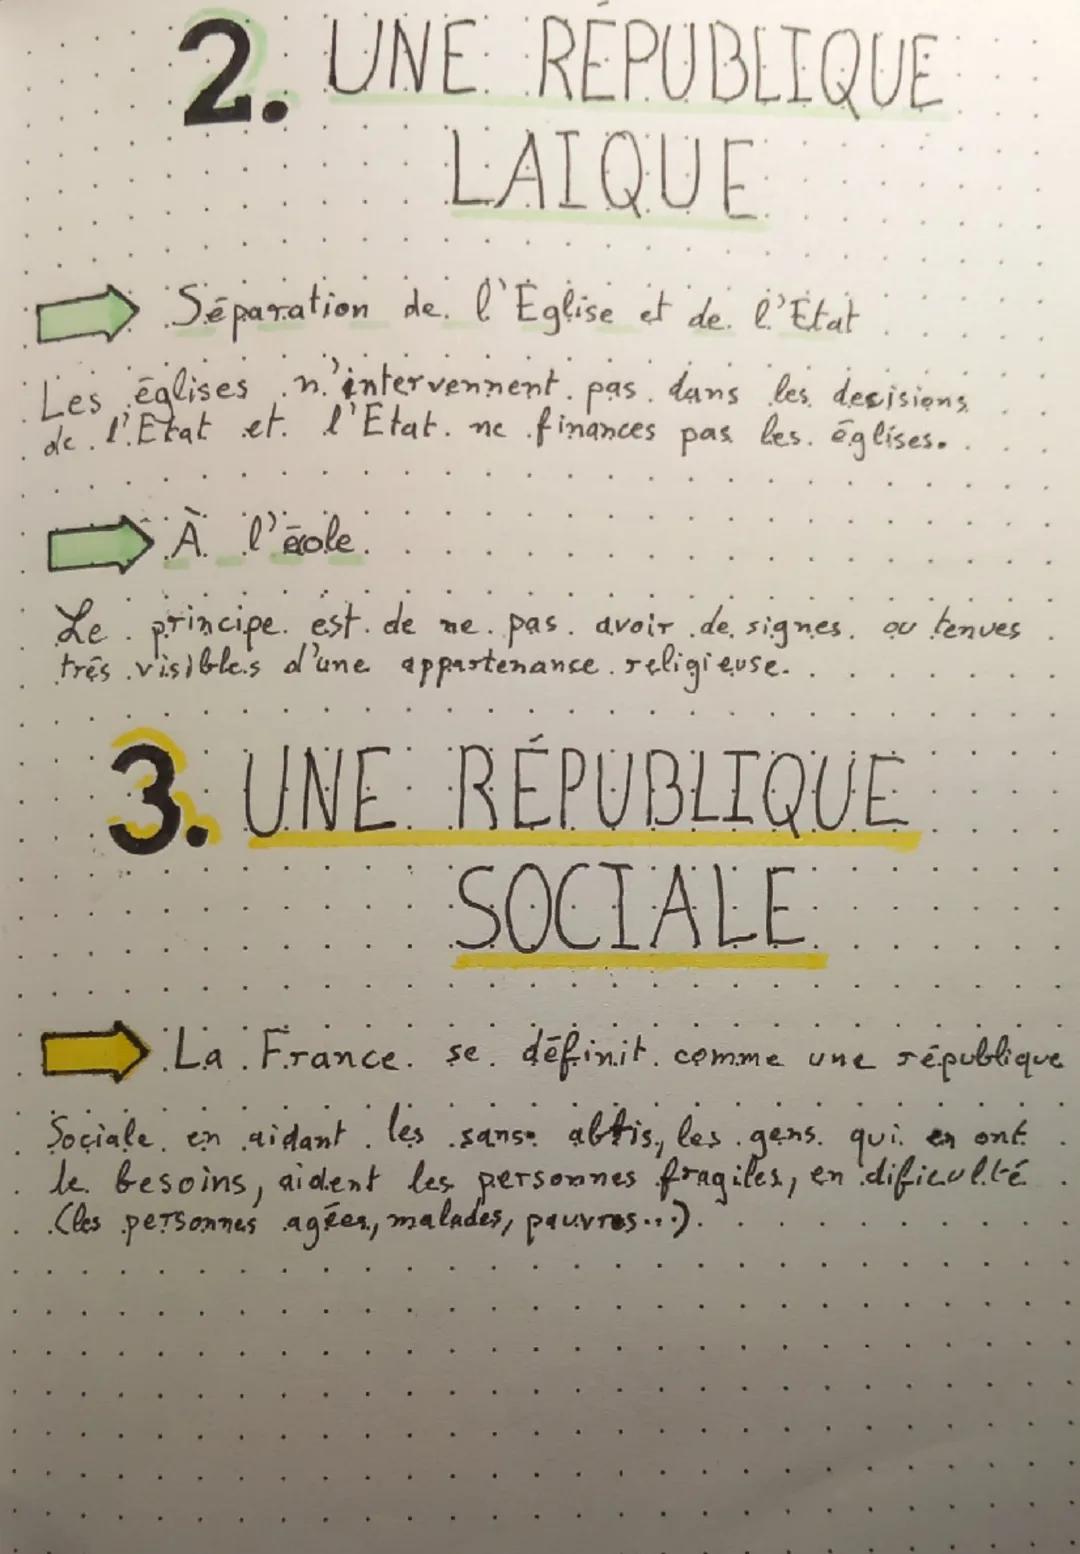 2. UNE RÉPUBLIQUE
LAIQUE
Séparation de l'Eglise et de l'Etat
Les églises n'intervennent pas dans les decisions
de l'Etat et l'Etat ne finances pas les églises.
À l'école
Le principe est de ne pas avoir de signes ou tenues
très visibles d'une appartenance religieuse.
3. UNE RÉPUBLIQUE
SOCIALE
La France se définit comme une république
Sociale en aidant les sans abris, les gens qui en ont
le besoins, aident les personnes fragiles, en dificulté
(les personnes agées, malades, pauvres...).